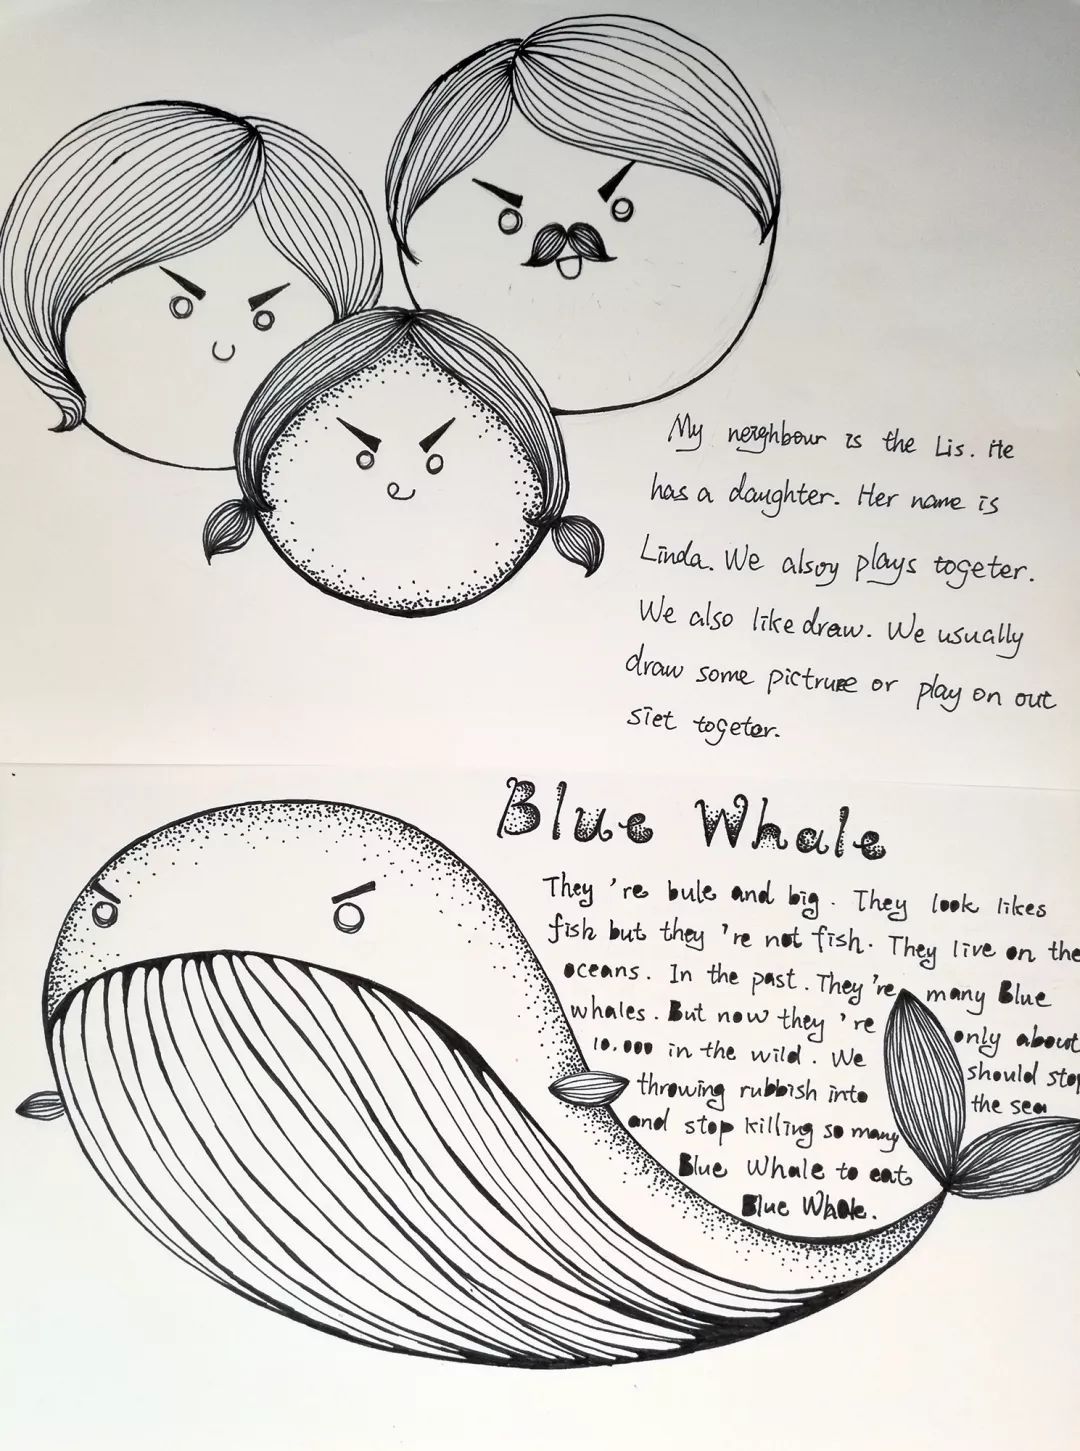 My neighbour is the Lis. He
has a daughter. Her name is
Linda. We alsoy plays togeter.
We also like draw. We usually
draw some pictruee or play on out
siet togeter.
Blue Whale
They 're bule and big. They look likes
fish but they 're not fish. They live on the
oceans. In the past. They're many Blue
whales. But now they 're only about
10.000 in the wild. We should stop
throwing rubbish into the sea
and stop killing so many
Blue Whale to eat
Blue Whale.